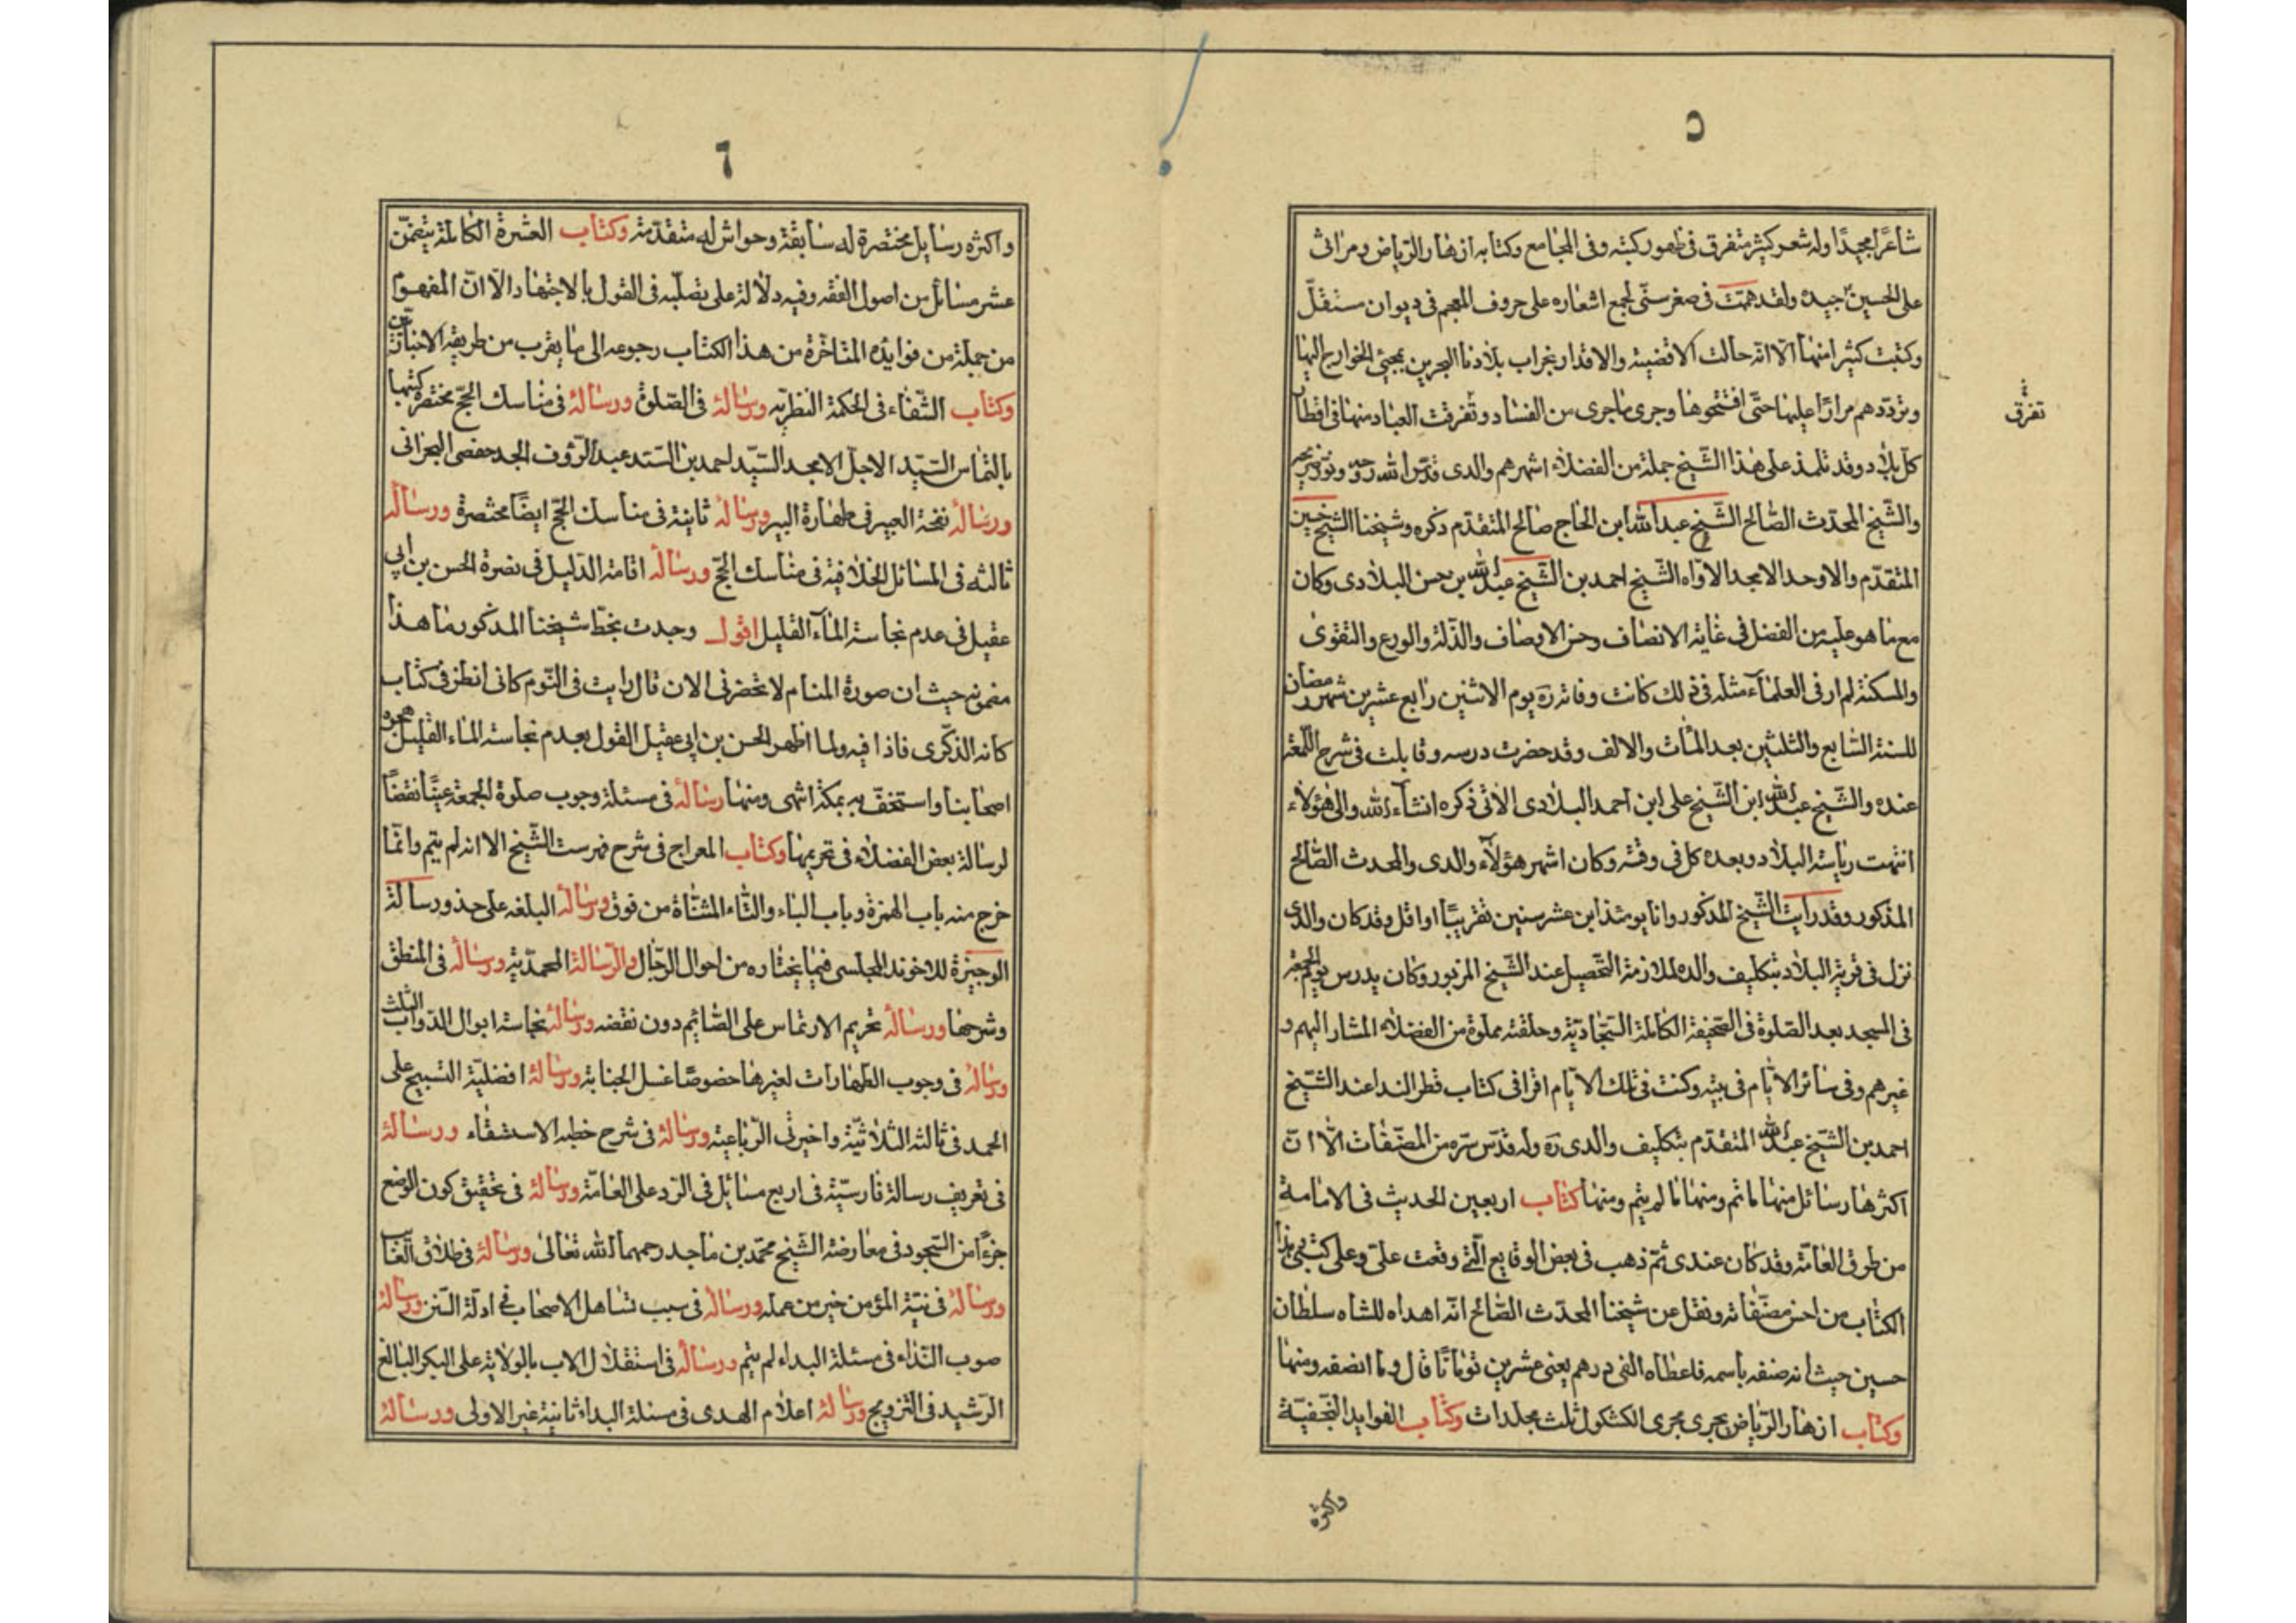 ٥
شاعرًا مجيدًا وله شعر كثير متفرق فى ظهور كتبه وفى المجامع وكتابه ازهار الرياض ومراثى
على الحسين جيدة ولقد هممت فى صغر سنّى لجمع اشعاره على حروف المعجم فى ديوان مستقلّ
وكتبت كثيرا منها الّا انه حالت الاقضية والاقدار بخراب بلادنا البحرين بمجيئ الخوارج اليها
وتردّدهم مرارًا عليها حتّى افتتحوها وجرى ما جرى من الفساد وتفرقت العباد منها فى اقطار
تفرق
كل بلاد وقد تلمذ على هذا الشّيخ جملة من الفضلاء اشهرهم والدى قدّس الله روحه ونوّر ضريحه
والشّيخ المحدّث الصّالح الشّيخ عبد الله ابن الحاج صالح المتقدّم ذكره وشيخنا الشّيخ حسين
المتقدّم والاوحد الامجد الاوّاه الشّيخ احمد بن الشّيخ عبد الله بن حسن البلادى وكان
مع ما هو عليه من الفضل فى غاية الانصاف وحسن الاوصاف والذّلة والورع والتقوى
والمسكنة لم ار فى العلماء مثله فى ذلك كانت وفاته ره يوم الاثنين رابع عشرين شهر رمضان
للسنة السّابع والثلثين بعد المأت والالف وقد حضرت درسه وقابلت فى شرح اللّمعة
عنده والشّيخ عبد الله ابن الشّيخ على ابن احمد البلادى الآتى ذكره انشاء الله والى هؤلاء
انتهت رياسة البلاد وبعده كل فى وقته وكان اشهر هؤلاء والدى والمحدث الصّالح
المذكور وقد رايت الشّيخ المذكور وانا يومئذ ابن عشر سنين تقريبًا او اقل وقد كان والدى
نزل فى قرية البلاد بتكليف والده لملازمة التّحصيل عند الشّيخ المزبور وكان يدرس يوم الجمعة
فى المسجد بعد الصّلوة فى الصّحيفة الكاملة السّجّاديّة وحلقته مملوة من الفضلاء المشار اليهم و
غيرهم وفى سائر الايّام فى بيته وكنت فى تلك الايّام اقرا فى كتاب قطر الندا عند الشّيخ
احمد بن الشّيخ عبد الله المتقدّم بتكليف والدى ره وله قدّس سرّه من المصنّفات الّا انّ
اكثرها رسائل منها ما تم ومنها ما لم يتم ومنها كتاب اربعين الحديث فى الامامة
من طرق العامّة وقد كان عندى ثمّ ذهب فى بعض الوقايع الّتى وقعت علىّ وعلى كتبى وهذا
الكتاب من احسن مصنّفاته ونقل عن شيخنا المحدّث الصّالح انّه اهداه للشاه سلطان
حسين حيث انه صنفه باسمه فاعطاه الفى درهم يعنى عشرين تومانًا قال وما انصفه ومنها
وكتاب ازهار الرّياض يجرى مجرى الكشكول ثلث مجلدات وكتاب الفوايد النّجفيّة
واكثره
٦
واكثره رسايل مختصرة له سابقة وحواش له متقدّمة وكتاب العشرة الكاملة يتضمّن
عشر مسائل من اصول الفقه وفيه دلالة على تصلّبه فى القول بالاجتهاد الّا انّ المفهوم
من جملة من فوايده المتاخّرة من هذا الكتاب رجوعه الى ما يقرب من طريقة الاخباريّين
وكتاب الشّفاء فى الحكمة النظريّه ورسالة فى الصّلوة ورسالة فى مناسك الحجّ مختصرة كتبها
بالتماس السّيّد الاجلّ الامجد السّيّد احمد بن السّيّد عبد الرّؤف الجد حفصى البحرانى
ورسالة نفحة العبير فى طهارة البير ورسالة ثانية فى مناسك الحجّ ايضًا مختصرة ورسالة
ثالثه فى المسائل الخلافية فى مناسك الحجّ ورسالة اقامة الدّليل فى نصرة الحسن بن ابى
عقيل فى عدم نجاسة الماء القليل اقول وجدت بخطّ شيخنا المذكور ما هذا
مضمونه حيث ان صورة المنام لا تحضرنى الان قال رايت فى النّوم كانى انظر فى كتاب
كانه الذّكرى فاذا فيه ولما اظهر الحسن بن ابى عقيل القول بعدم نجاسة الماء القليل هجره
اصحابنا واستخفّ به بمكة انتهى ومنها رسالة فى مسئلة وجوب صلوة الجمعة عينًا نقضًا
لرسالة بعض الفضلاء فى تحريمها وكتاب المعراج فى شرح فهرست الشّيخ الا انه لم يتم وانّما
خرج منه باب الهمزة وباب الباء والتّاء المثنّاة من فوق ورسالة البلغه على حذو رسالة
الوجيزة للاخوند المجلسى فيما يختاره من احوال الرّجال والرّسالة المحمّديّه ورسالة فى المنطق
وشرحها ورسالة تحريم الارتماس على الصّائم دون نقضه ورسالة نجاسة ابوال الدّوابّ الثلث
ورسالة فى وجوب الطهارات لغيرها خصوصًا غسل الجنابة ورسالة افضليّة التسبيح على
الحمد فى ثالثة الثّلاثيّة واخيرتى الرّباعيّه ورسالة فى شرح خطبه الاستسقاء ورسالة
فى تعريف رسالة فارسيّة فى اربع مسائل فى الرّد على العامّة ورسالة فى تحقيق كون الوضع
جزءًا من السّجود فى معارضة الشّيخ محمّد بن ماجد رحمهما الله تعالى ورسالة فى طلاق الغائب
ورسالة فى نيّة المؤمن خير من عمله ورسالة فى سبب تساهل الاصحاب فى ادلّة السّنن ورسالة
صوب النّداء فى مسئلة البداء لم يتم ورسالة فى استقلال الاب بالولاية على البكر البالغ
الرّشيد فى التزويج ورسالة اعلام الهدى فى مسئلة البداء ثانية غير الاولى ورسالة